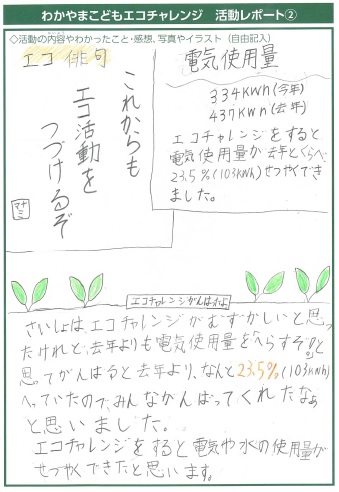 わかやまこどもエコチャレンジ 活動レポート②
◇活動の内容やわかったこと・感想、写真やイラスト（自由記入）
エコ俳句
これからも
エコ活動を
つづけるぞ
電気使用量
334KWh(今年)
437KWh(去年)
エコチャレンジをすると
電気使用量が去年とくらべ、
23.5%(103KWh)せつやくでき
ました。
エコチャレンジがんばったよ
さいしょは、エコチャレンジがむずかしいと思っ
たけれど、去年よりも電気使用量をへらすぞ!と
思てがんばると去年より、なんと23.5%(103KWh)
へっていたので、みんながんばってくれたなぁ
と思いました。
エコチャレンジをすると電気や水の使用量が
せつやくできたと思います。